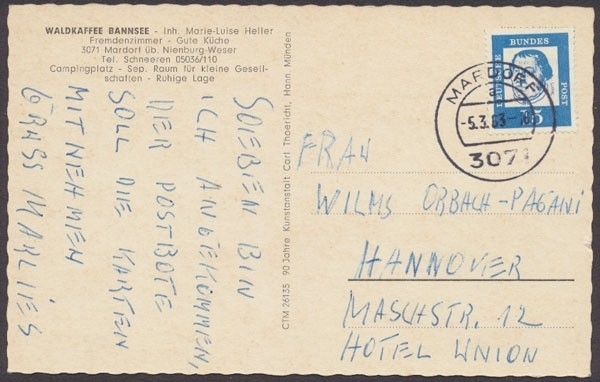 WALDKAFFEE BANNSEE - Inh. Marie-Luise Heller
Fremdenzimmer - Gute Küche
3071 Mardorf üb. Nienburg-Weser
Tel. Schneeren 05036/110
Campingplatz - Sep. Raum für kleine Gesell-
schaften - Ruhige Lage
SOEBEN BIN
ICH ANGEKOMMEN,
DER POSTBOTE
SOLL DIE KARTEN
MITNEHMEN
GRUSS MARLIES
CTM 26135 90 Jahre Kunstanstalt Carl Thoericht, Hann. Münden
DEUTSCHE
BUNDES
POST
15
MARDORF
-5.3.63-
3071
FRAU
WILMS ORBACH-PAGANI
HANNOVER
MASCHSTR. 12
HOTEL UNION